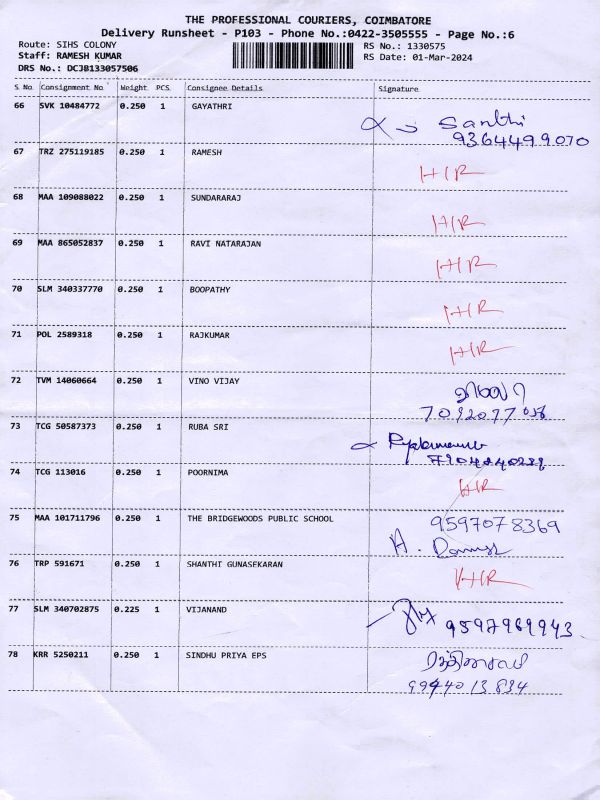 THE PROFESSIONAL COURIERS, COIMBATORE
Delivery Runsheet - P103 - Phone No.:0422-3505555 - Page No.:6
Route: SIHS COLONY RS No.: 1330575
Staff: RAMESH KUMAR RS Date: 01-Mar-2024
DRS No.: DCJB133057506
S No Consignment No Weight PCS Consignee Details Signature
66 SVK 10484772 0.250 1 GAYATHRI
Santhi
9364499070
67 TRZ 275119185 0.250 1 RAMESH HR
68 MAA 109088022 0.250 1 SUNDARARAJ HR
69 MAA 865052837 0.250 1 RAVI NATARAJAN HR
70 SLM 340337770 0.250 1 BOOPATHY HR
71 POL 2589318 0.250 1 RAJKUMAR HR
72 TVM 14060664 0.250 1 VINO VIJAY
73 TCG 50587373 0.250 1 RUBA SRI
74 TCG 113016 0.250 1 POORNIMA HR
75 MAA 101711796 0.250 1 THE BRIDGEWOODS PUBLIC SCHOOL 9597078369
76 TRP 591671 0.250 1 SHANTHI GUNASEKARAN HR
77 SLM 340702875 0.225 1 VIJANAND 9597969943
78 KRR 5250211 0.250 1 SINDHU PRIYA EPS
9944013834